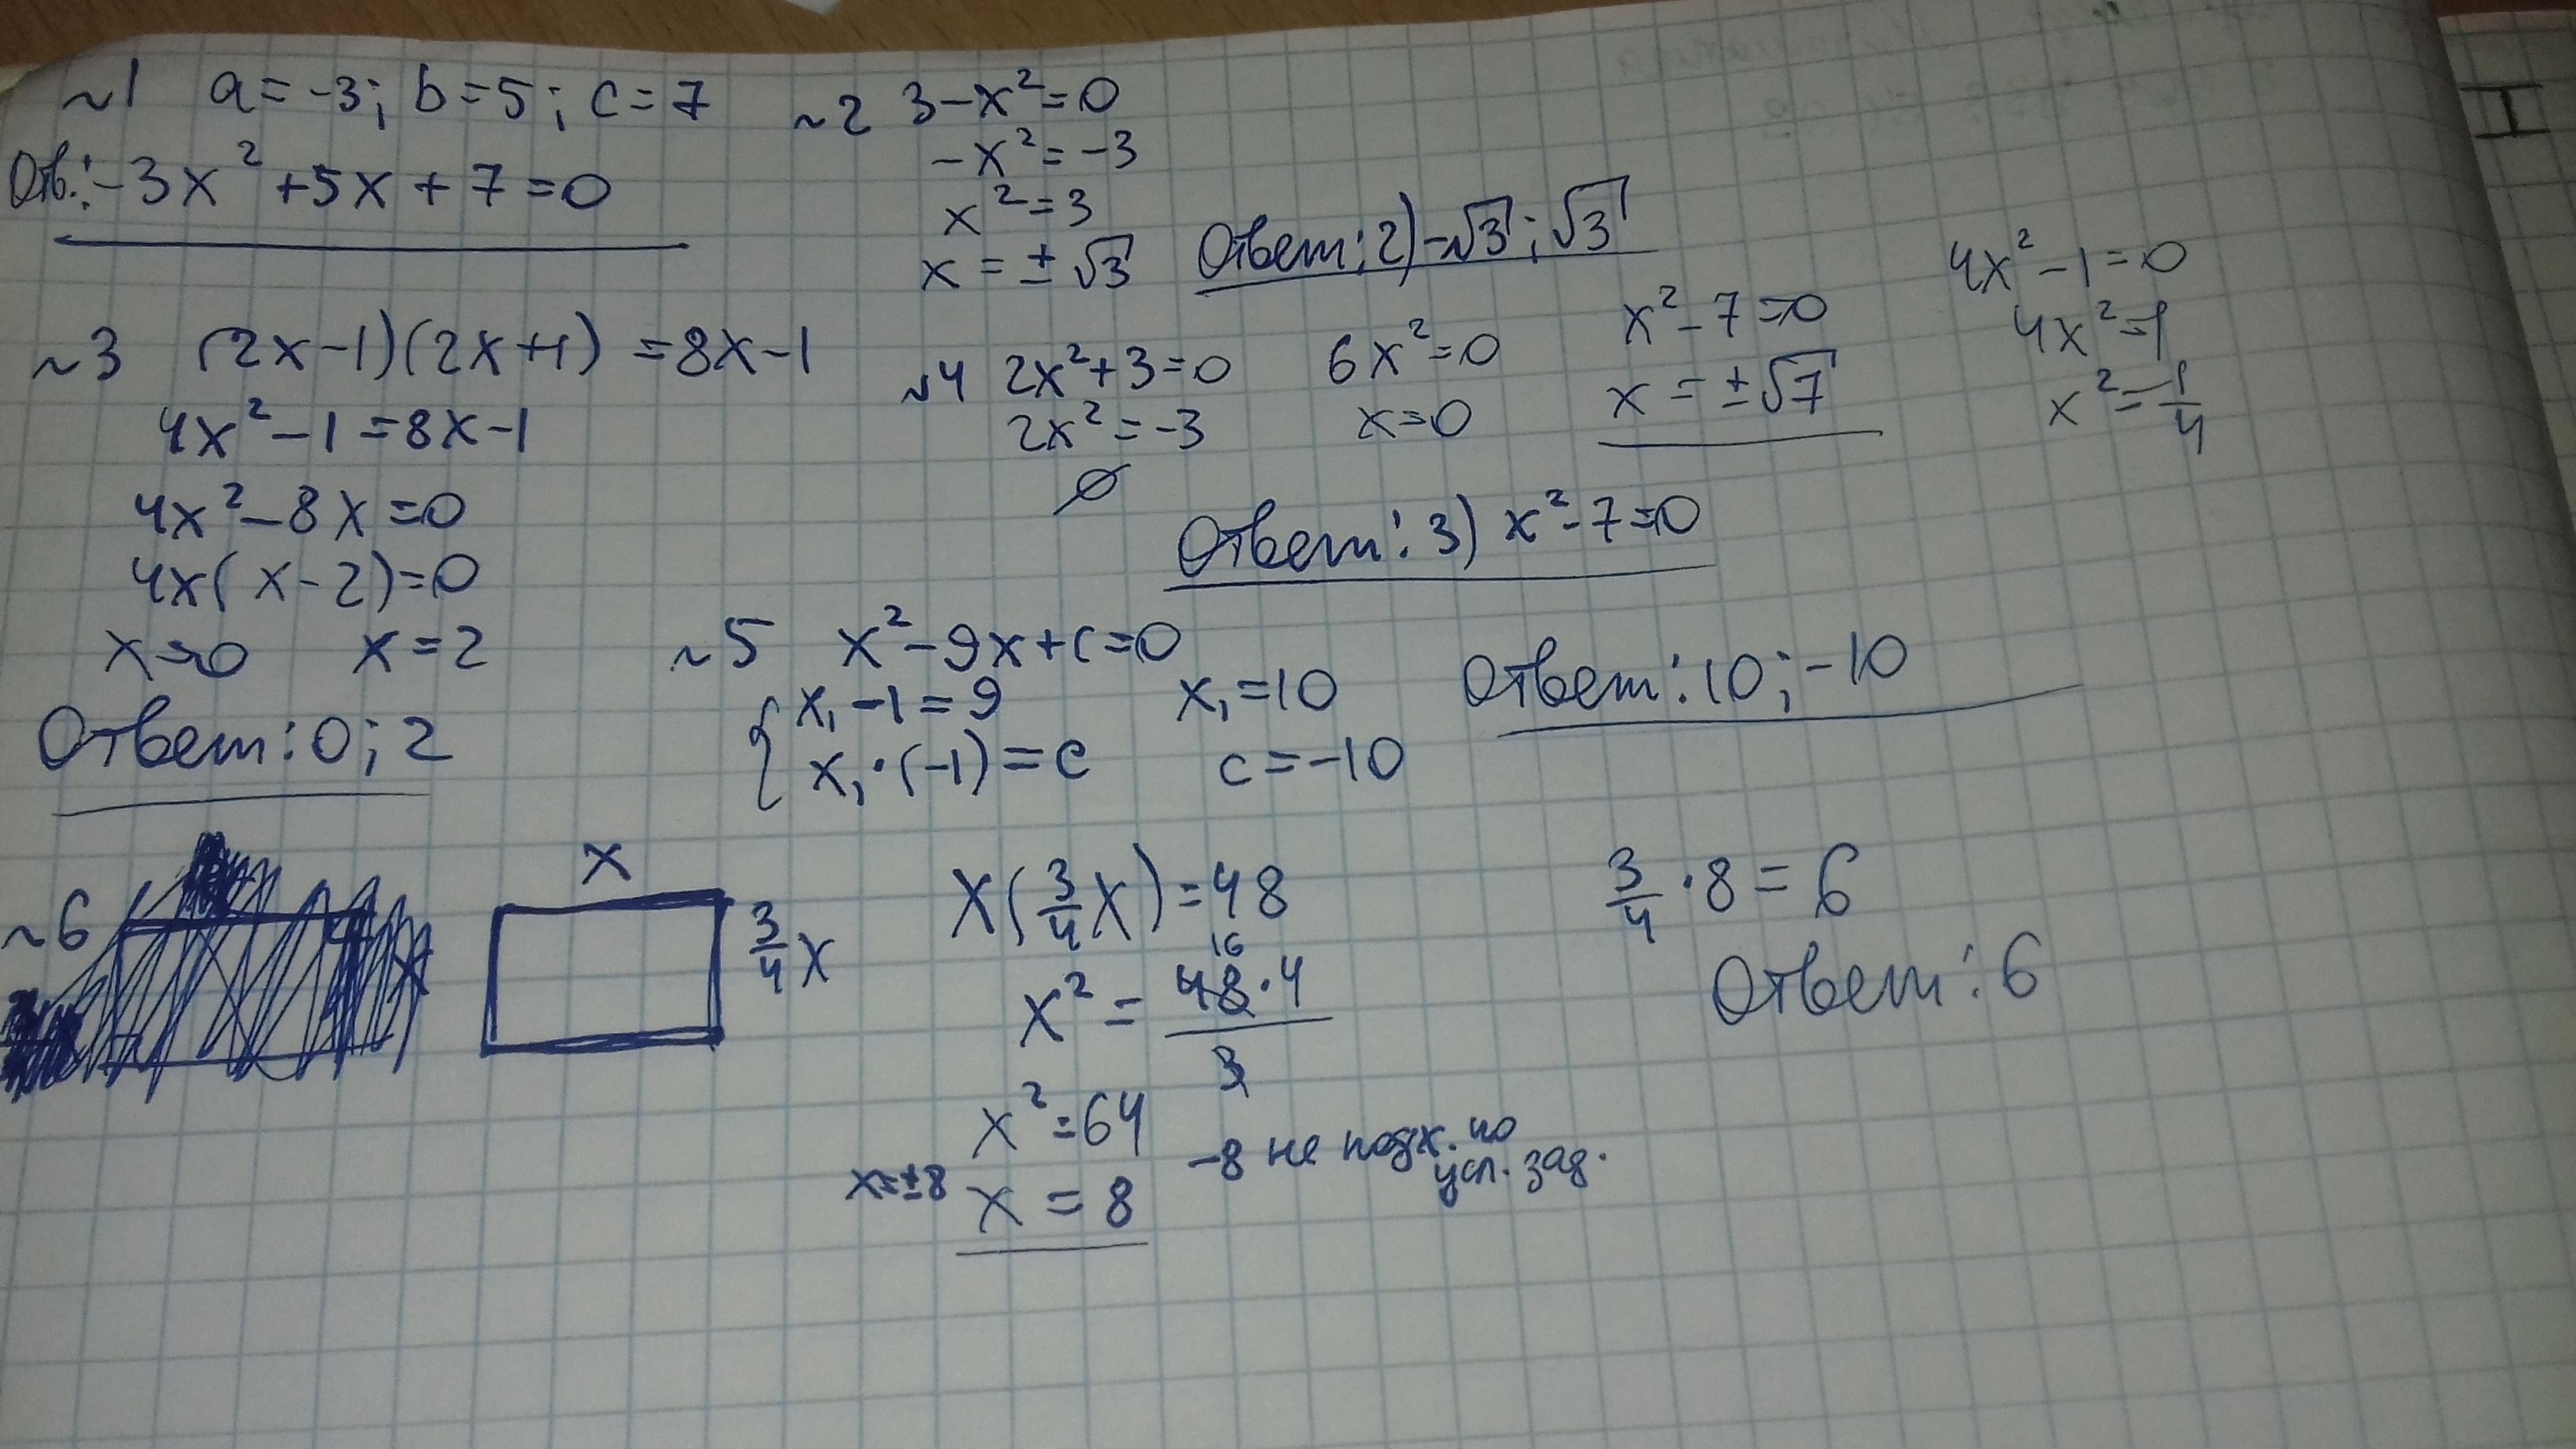 ~1 a=-3; b=5; c=7
Отв.: -3x²+5x+7=0
~2 3-x²=0
-x²=-3
x²=3
x=±√3
Ответ: 2) -√3; √3
~3 (2x-1)(2x+1)=8x-1
4x²-1=8x-1
4x²-8x=0
4x(x-2)=0
x=0 x=2
Ответ: 0; 2
~4 2x²+3=0
2x²=-3
∅
6x²=0
x=0
x²-7=0
x=±√7
4x²-1=0
4x²=1
x²=1/4
Ответ: 3) x²-7=0
~5 x²-9x+c=0
{ x₁-1=9
x₁·(-1)=c
x₁=10
c=-10
Ответ: 10; -10
~6
x
3/4 x
x(3/4 x)=48
x²= 48·4/3
16
x²=64
x=±8
x=8
-8 не подх. по
усл. зад.
3/4·8=6
Ответ: 6